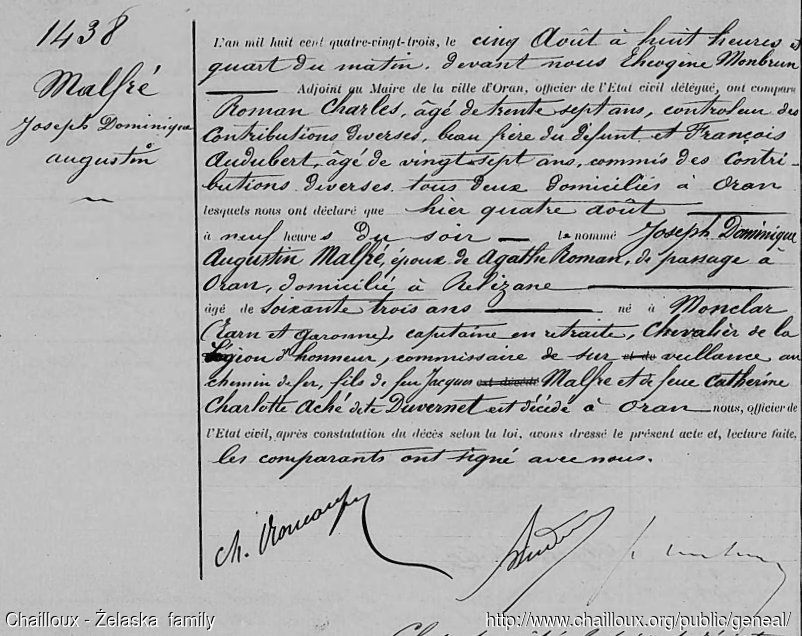 1438
Malfré
Joseph Dominique
Augustin
L'an mil huit cent quatre-vingt-trois, le cinq Août à huit heures et
quart du matin. devant nous Ehcogène Monbrun
Adjoint au Maire de la ville d'Oran, officier de l'Etat civil délégué, ont comparu
Roman Charles, âgé de trente sept ans, controleur des
Contributions diverses, beau frère du défunt et François
Audubert, âgé de vingt sept ans, commis des Contri-
butions diverses tous deux domiciliés à Oran
lesquels nous ont déclaré que hier quatre août
à neuf heures du soir le nommé Joseph Dominique
Augustin Malfré, époux de Agathe Roman, de passage à
Oran, domicilié à Relizane
âgé de soixante trois ans né à Monclar
(Tarn et Garonne), capitaine en retraite, Chevalier de la
Légion d'honneur, commissaire de sur et de veillance au
chemin de fer, fils de feu Jacques est décédé Malfré et de feue Catherine
Charlotte Aché dite Duvernet est décédé à Oran nous, officier de
l'Etat civil, après constatation du décès selon la loi, avons dressé le présent acte et, lecture faite,
les comparants ont signé avec nous.
Ch. Roman
Chailloux - Żelaska family
http://www.chailloux.org/public/geneal/